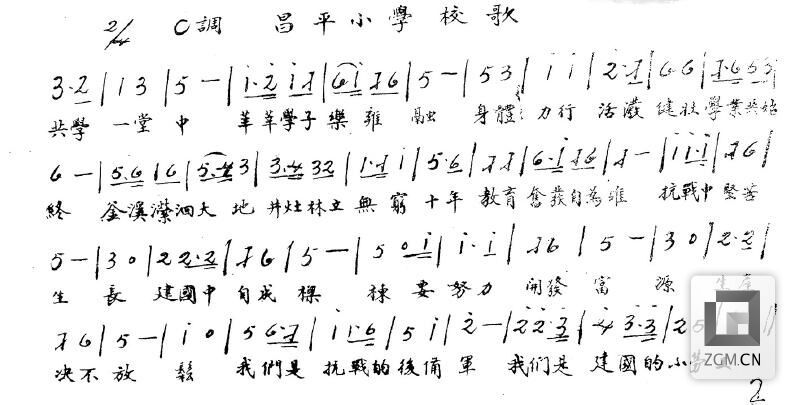 2/4 C調 昌平小學校歌
3·2 | 1 3 | 5 — | 1·2 1 7 | 6 1 7 6 | 5 — | 5 3 | 1 1 | 2·7 | 6 6 | 7·6 5 3 |
共學 一堂 中 莘莘學子 樂雍 融 身體 力行 活潑 健壯 學業共始
6 — | 5·6 1 6 | 5·4 3 | 3·4 3 2 | 1·7 1 | 5·6 | 7 7 | 6·1 7 6 | 7 — | 1 1·1 | 7 6 |
終 釜溪瀠洄天 地 井灶林立 無 窮 十年 教育 奮發自為雄 抗戰中 堅苦
5 — | 3 0 | 2 2 2·2 | 7 6 | 5 — | 5 0 1 | 1·1 | 7 6 | 5 — | 3 0 | 2·2 |
生 長 建國中 自成 樑 棟 要 努力 開發 富 源 生產
7 6 | 5 — | 1 0 | 5 6·7 | 1 1·6 | 5 1 | 2 — | 2 2·3 | 4 3·3 | 2 5
決不 放 鬆 我們是 抗戰的後備 軍 我们是 建國的小
ZGM.CN
2